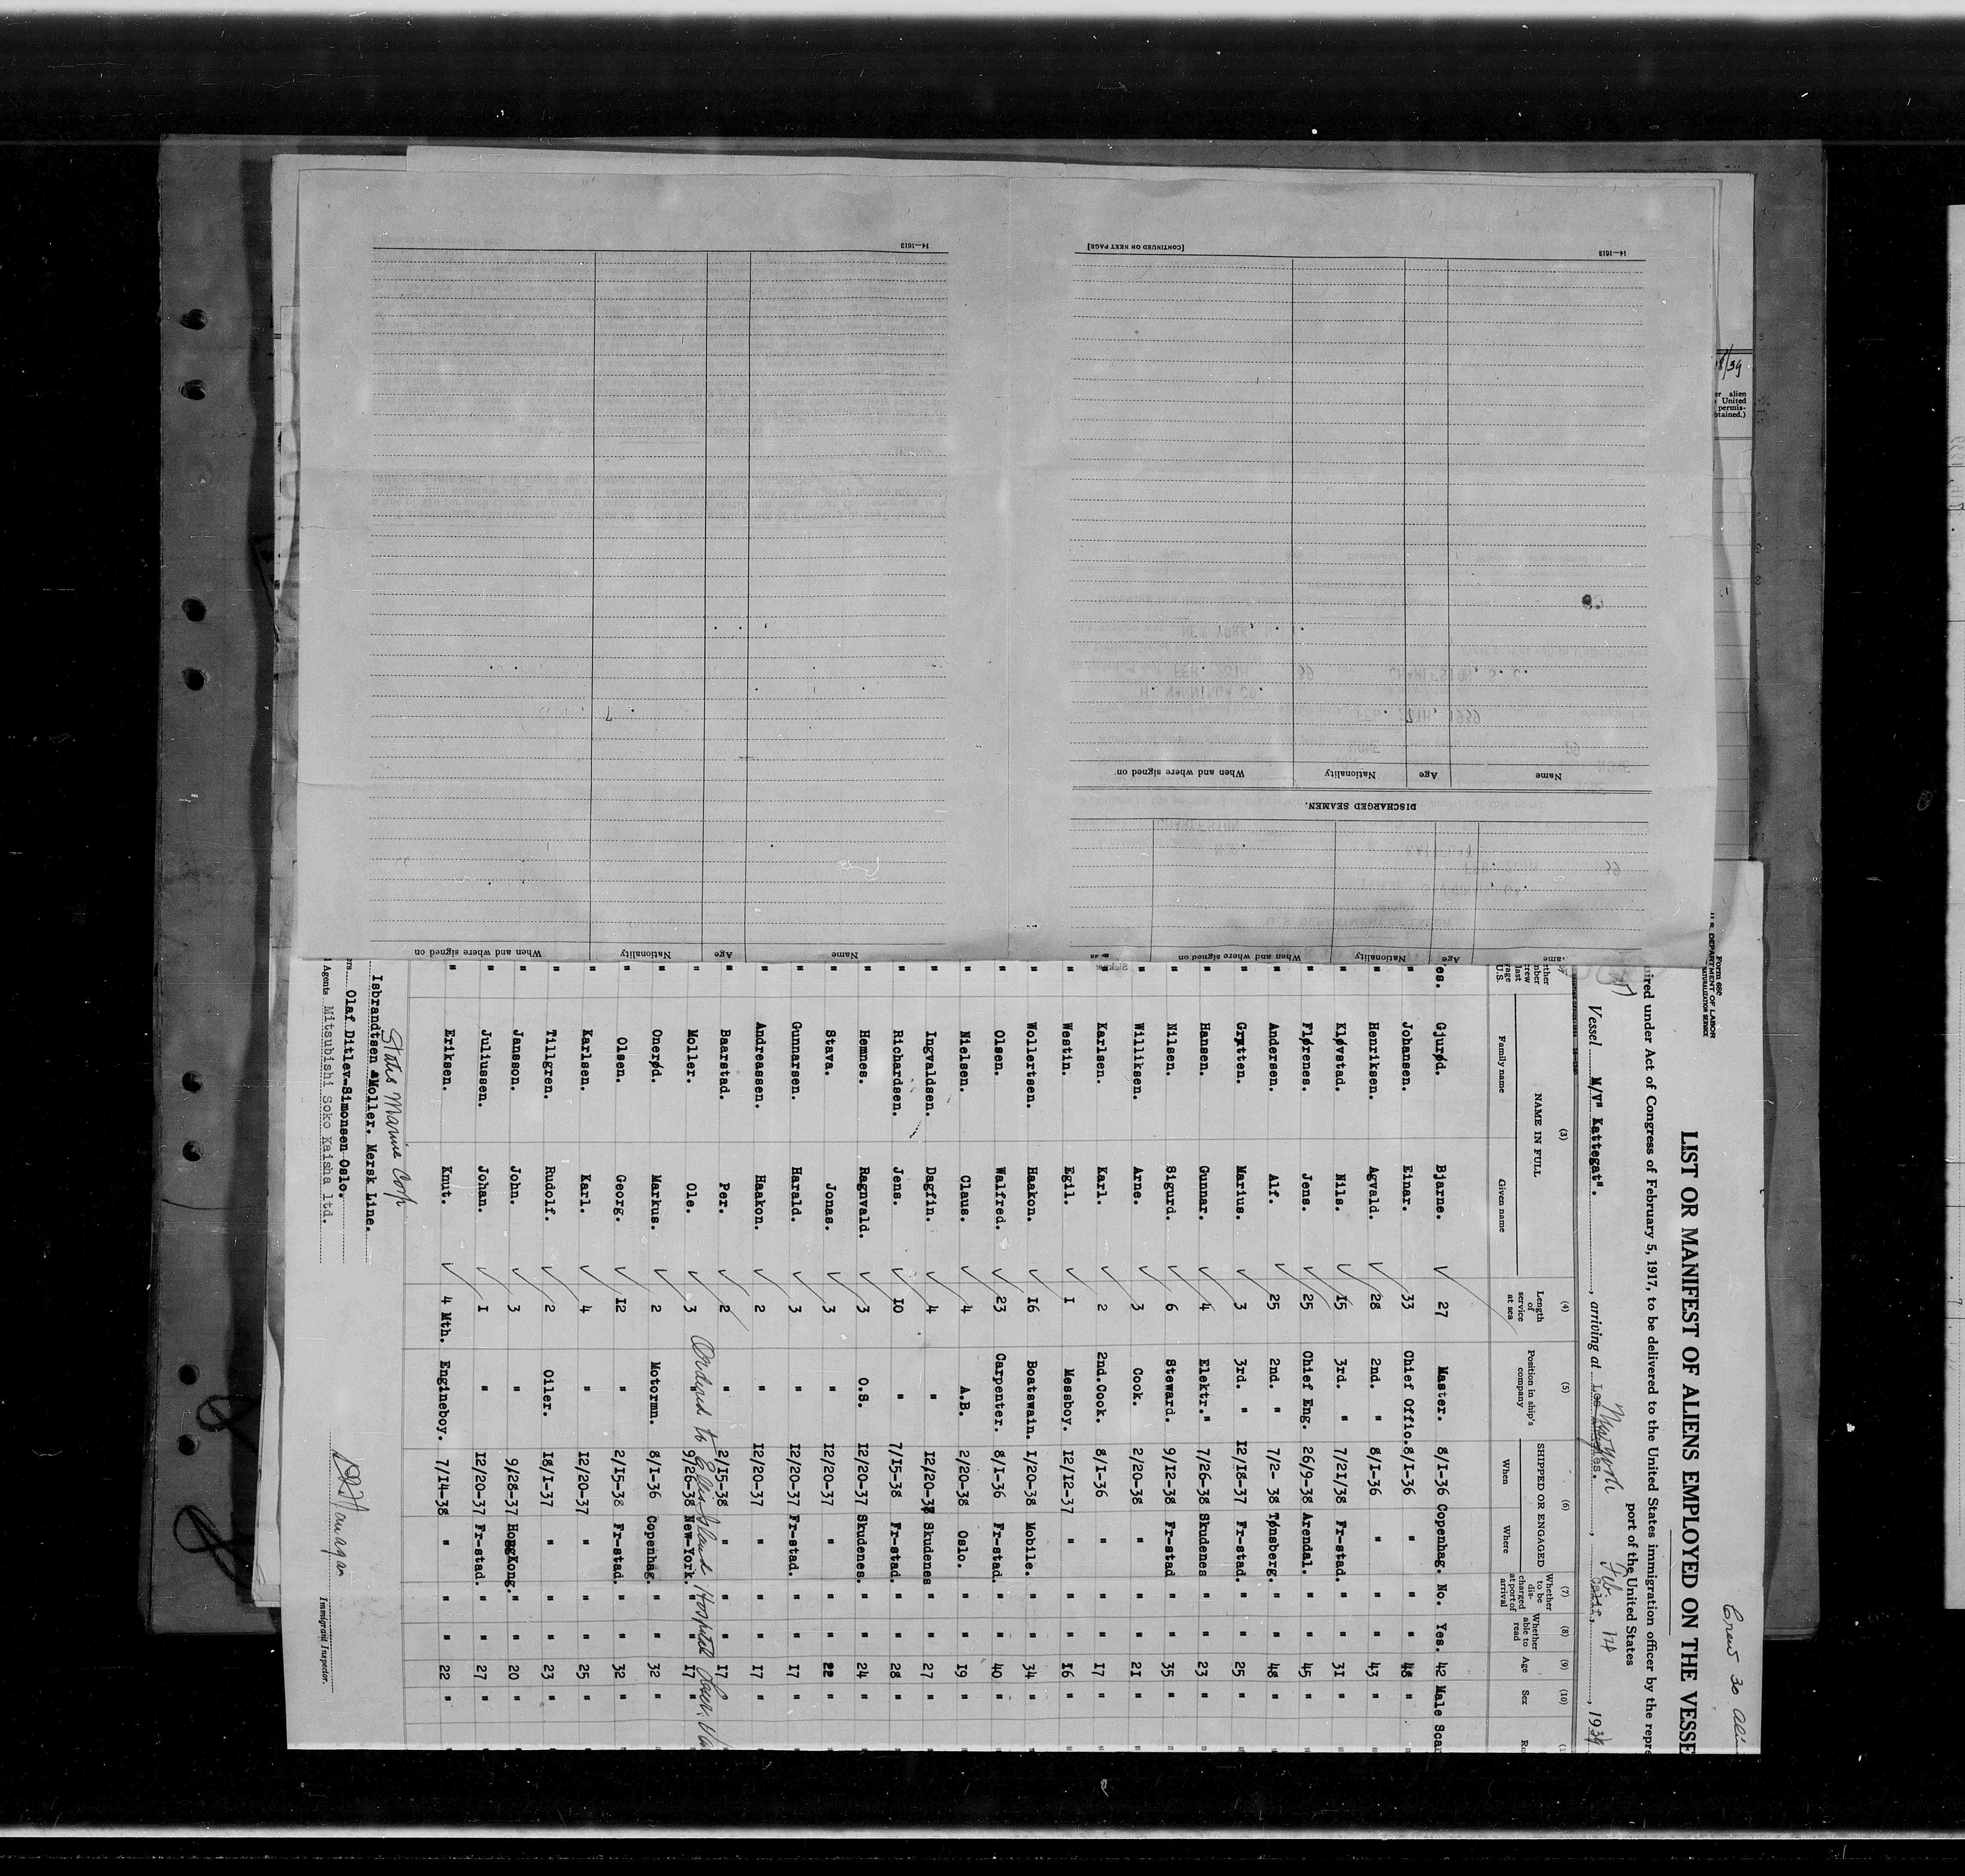 14—1613
[CONTINUED ON NEXT PAGE]
14—1613
When and where signed on Nationality Age Name
DISCHARGED SEAMEN.
When and where signed on Nationality Age Name
When and where signed on Nationality Age Name
8/39
er alien
United
permis-
btained.)
Crew 30
Form 680
U. S. DEPARTMENT OF LABOR
LIST OR MANIFEST OF ALIENS EMPLOYED ON THE VESSE
uired under Act of Congress of February 5, 1917, to be delivered to the United States immigration officer by the repre
port of the United States
Vessel M/V" Kattegat". , arriving at Los Angeles. New York , Feb. 14 , 1939
(3) (4) (5) (6) (7) (8) (9) (10)
NAME IN FULL
Family name Given name
Length of service at sea
Position in ship's company
SHIPPED OR ENGAGED
When Where
Whether to be discharged at port of arrival
Whether able to read
Age Sex
es. Gjurød. Bjarne. 27 Master. 8/1-36 Copenhag. No. Yes. 42 Male Scan
" Johansen. Einar. 33 Chief Offic. 8/1-36 " " " 48 "
" Henriksen. Agvald. 28 2nd. " 8/1-36 " " " 43 "
" Kløvstad. Nils. 15 3rd. " 7/21/38 Fr-stad. " " 31 "
" Flørenes. Jens. 25 Chief Eng. 26/9-38 Arendal. " " 45 "
" Andersen. Alf. 25 2nd. " 7/2- 38 Tønsberg. " " 48 "
" Grytten. Marius. 3 3rd. " 12/18-37 Fr-stad. " " 25 "
" Hansen. Gunnar. 4 Elektr." 7/26-38 Skudenes " " 23 "
" Nilsen. Sigurd. 6 Steward. 9/12-38 Fr-stad " " 35 "
" Williksen. Arne. 3 Cook. 2/20-38 " " " 21 "
" Karlsen. Karl. 2 2nd.Cook. 8/1-36 " " " 17 "
" Westin. Egil. 1 Messboy. 12/12-37 " " " 16 "
" Wollertsen. Haakon. 16 Boatswain. 1/20-38 Mobile. " " 34 "
" Olsen. Walfred. 23 Carpenter. 8/1-36 Fr-stad. " " 40 "
" Nielsen. Claus. 4 A.B. 2/20-38 Oslo. " " 19 "
" Ingvaldsen. Dagfin. 4 " 12/20-37 Skudenes " " 27 "
" Richardsen. Jens. 10 " 7/15-38 Fr-stad. " " 28 "
" Hemnes. Ragnvald. 3 O.S. 12/20-37 Skudenes. " " 24 "
" Stava. Jonas. 3 " 12/20-37 " " " 22 "
" Gunnarsen. Harald. 3 " 12/20-37 Fr-stad. " " 17 "
" Andreassen. Haakon. 2 " 12/20-37 " " " 17 "
" Baarstad. Per. 2 " 2/15-38 " " " 17 "
Ordered to Ellis Island Hospital
" Moller. Ole. 3 9/26-38 New-York. " " 17 "
" Onerød. Markus. 2 Motormn. 8/1-36 Copenhag. " " 32 "
" Olsen. Georg. 12 " 2/15-38 Fr-stad. " " 32 "
" Karlsen. Karl. 4 " 12/20-37 " " " 25 "
" Tillgren. Rudolf. 2 Oiler. 18/1-37 " " " 23 "
" Jansson. John. 3 " 9/28-37 HongKong. " " 20 "
" Juliussen. Johan. 1 " 12/20-37 Fr-stad. " " 27 "
" Eriksen. Knut. 4 Mth. Engineboy. 7/14-38 " " " 22 "
States Marine Corp
Isbrandtsen &Moller. Mersk Line.
Olaf Ditlev-Simonsen Oslo.
Agents Mitsubishi Soko Kaisha ltd.
Immigrant Inspector.